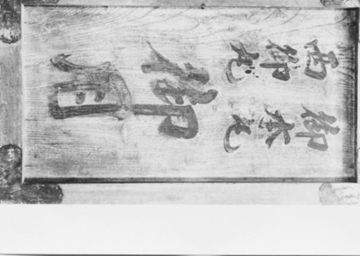 御本丸
西御丸
御用